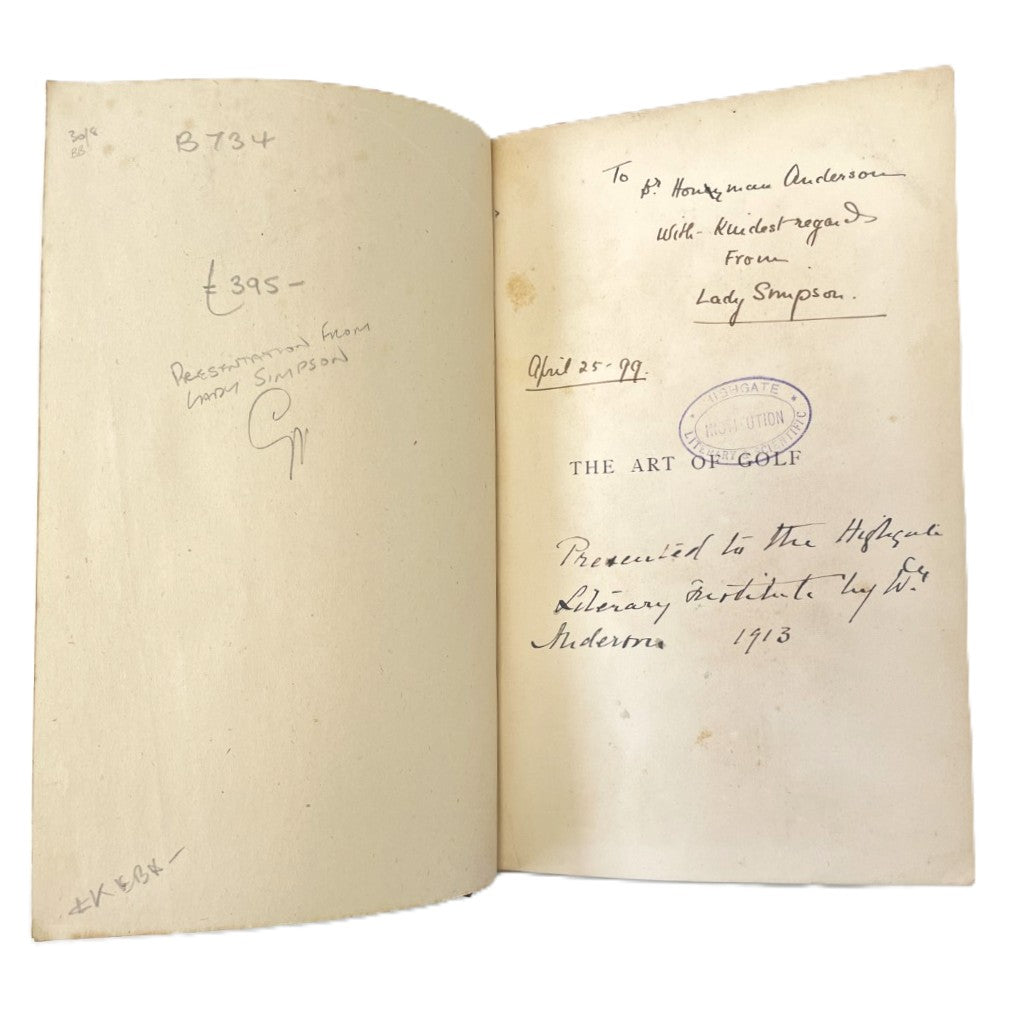 B734
£395-
PRESENTATION FROM
LADY SIMPSON
To Dr Honeyman Anderson
With Kindest regards
From
Lady Simpson.
April 25-99.
HIGHGATE
INSTITUTION
LITERARY & SCIENTIFIC
THE ART OF GOLF
Presented to the Highgate
Literary Institute by
Anderson 1913